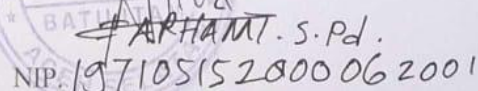 BATU
FARHAMI. S.Pd.
NIP. 197105152000062001